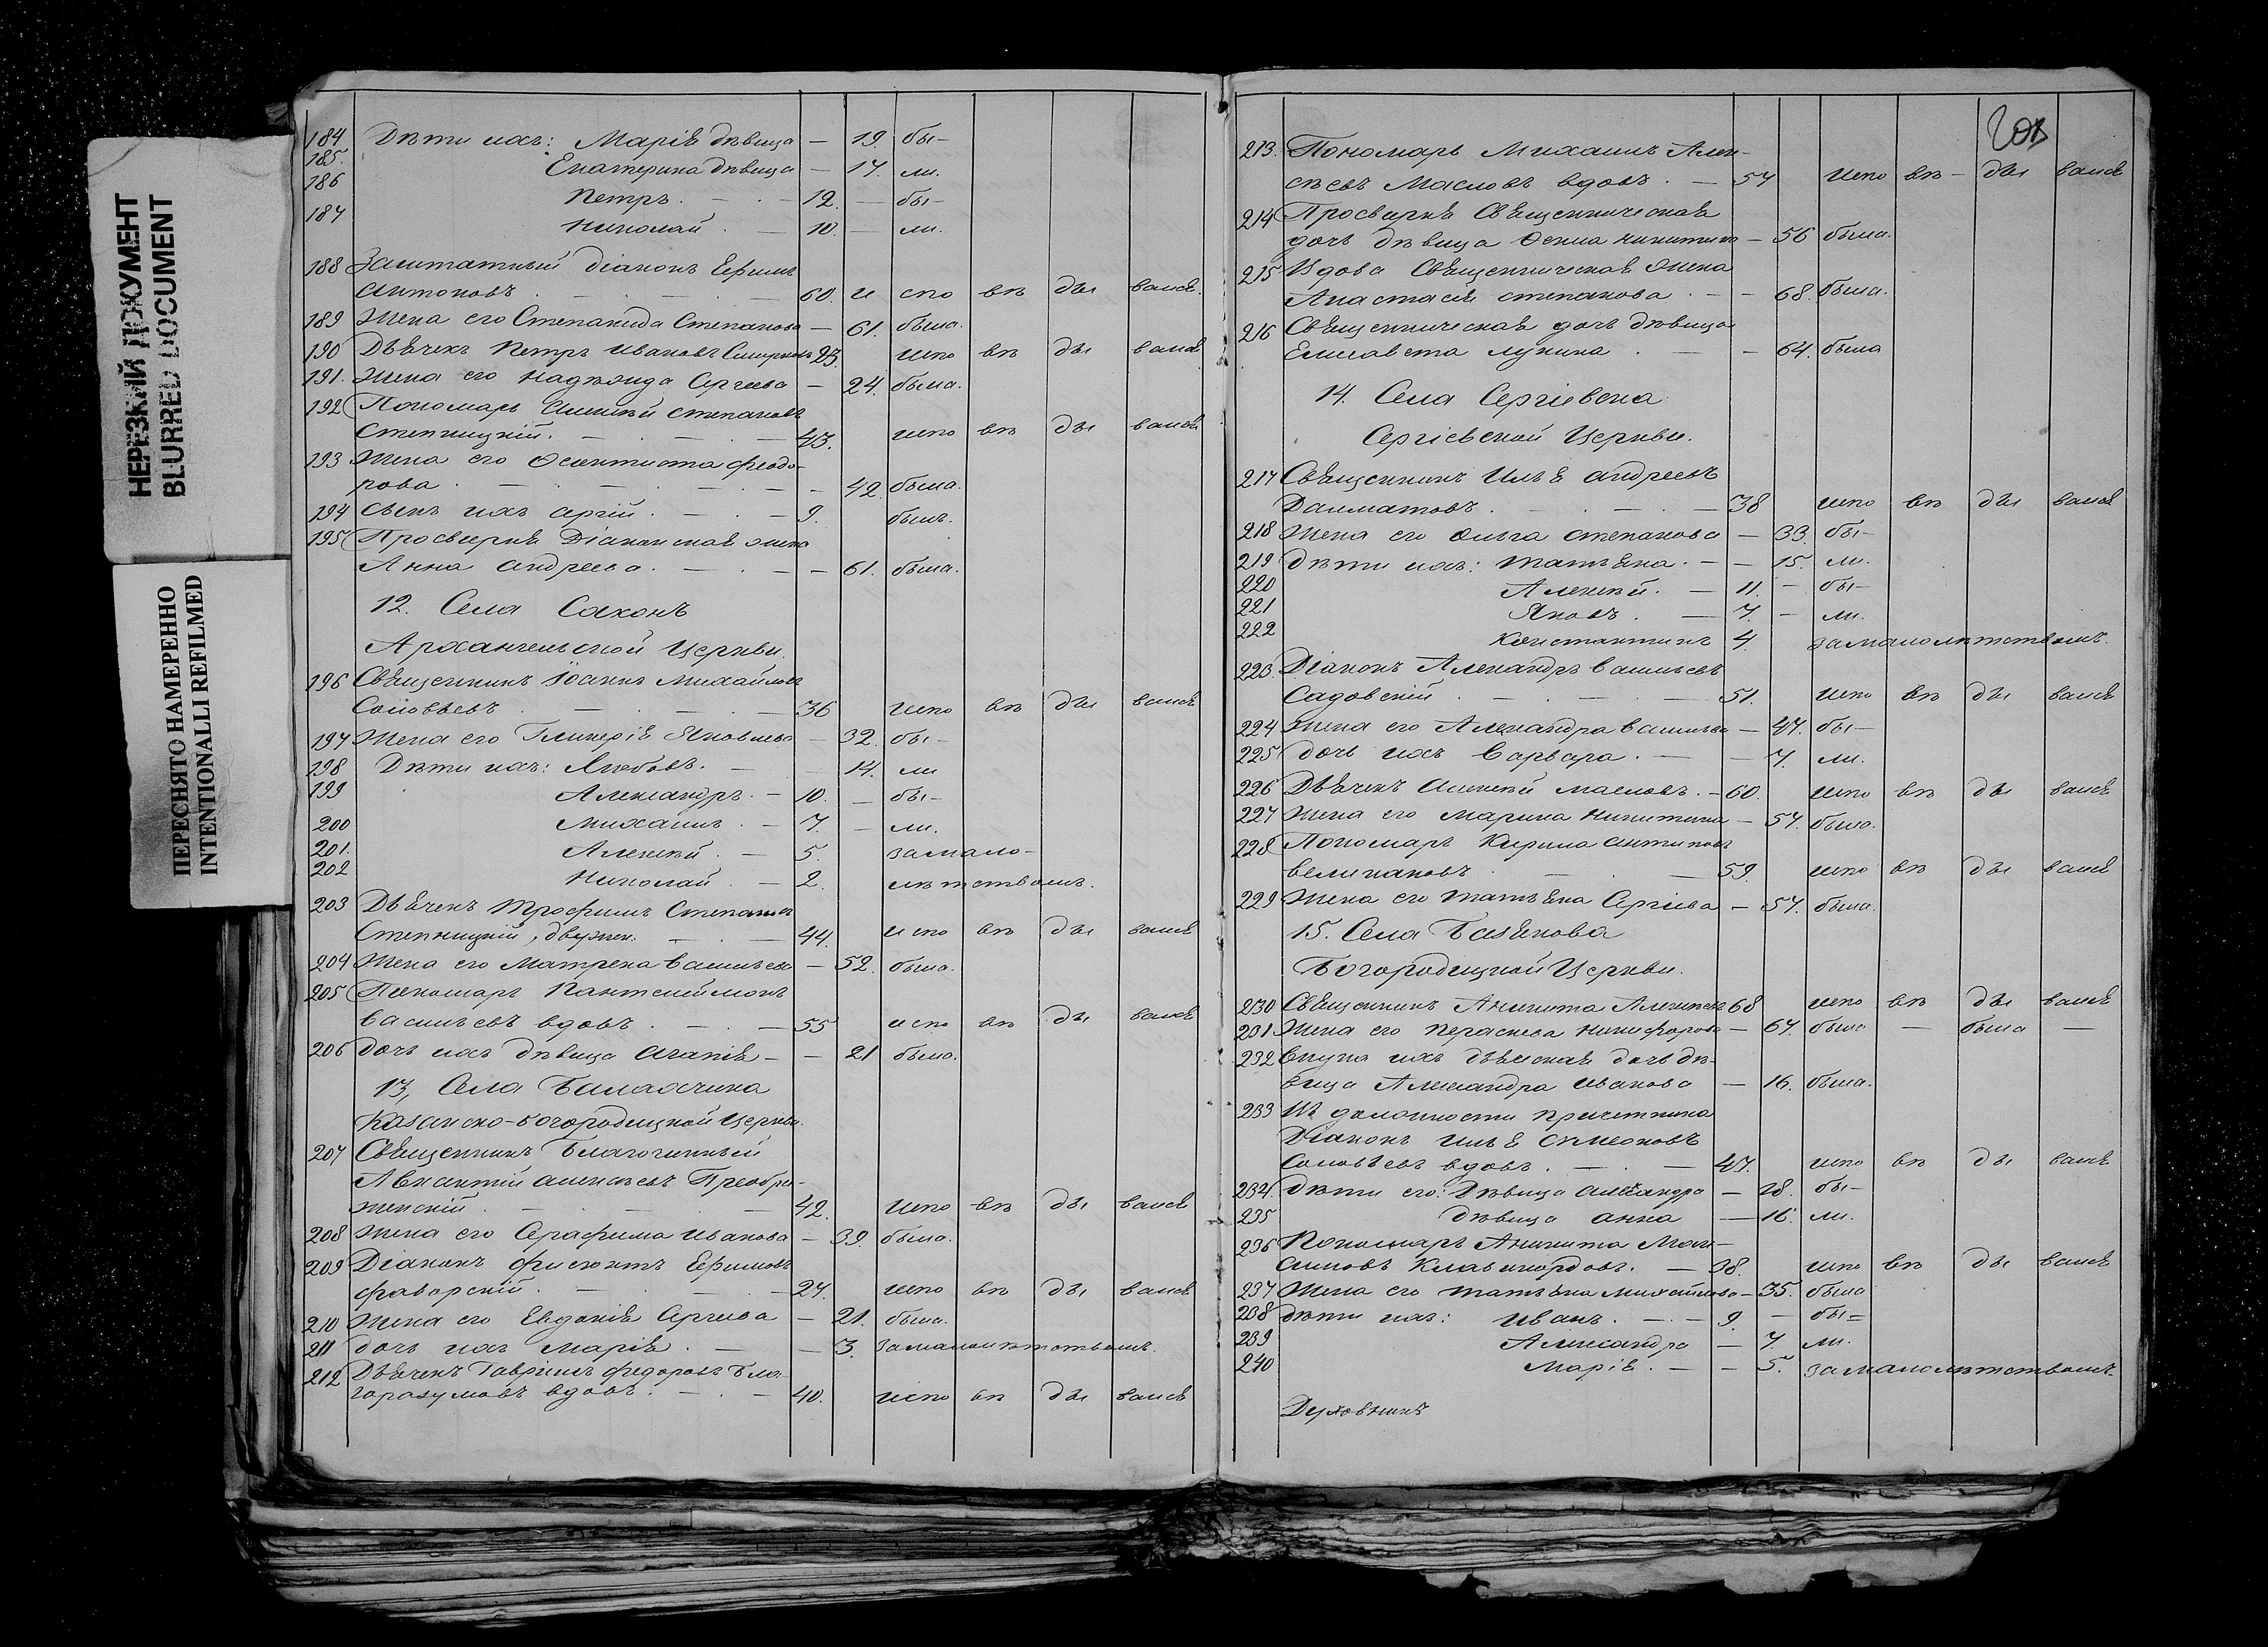 НЕРЕЗКИЙ ДОКУМЕНТ
BLURRED DOCUMENT
ПЕРЕСНЯТО НАМЕРЕННО
INTENTIONALLI REFILMED
184 Дѣти ихъ: Марія дѣвица — 19. бы-
185. Екатерина дѣвица — 17. ли.
186 Петръ. — 12. — бы-
187 Николай. — 10. — ли.
188 Заштатный Діаконъ Ефимъ
Антоновъ 60. и спо вѣ ды вался.
189 Жена его Степанида Степанова — 61. была.
190 Дьячекъ Петръ Ивановъ Смирновъ 23. испо вѣ ды вался
191. Жена его Надѣжда Сергеева — 24. была.
192 Пономарь Алексѣй Степановъ
Степницкій. — 43. испо вѣ ды вался
193 Жена его Феоктиста Феодо-
рова — 42. была.
194 Сынъ ихъ Сергій. — 9. былъ.
195 Просвирня Діаконская жена
Анна Андреева. — 61. была.
12. Села Саконъ
Архангельской Церкви.
196 Священникъ Іоаннъ Михайловъ
Соловьевъ 36 испо вѣ ды вался
197 Жена его Гликерія Яковлева — 32. бы-
198 Дѣти ихъ: Любовь. — 14. ли
199 Александръ. — 10. — бы-
200 Михаилъ. — 7. — ли.
201. Алексѣй. — 5. за мало-
202 Николай. — 2. лѣтствомъ.
203 Дьячекъ Трофимъ Степановъ
Степницкій, 44. испо вѣ ды вался
204 Жена его Матрена Васильева — 52. была.
205 Пономарь Пантелеймонъ
Васильевъ вдовъ. — 55 испо вѣ ды вался
206 дочь ихъ дѣвица Агапія — 21 была.
13, Села Балахчина
Казанско-Богородицкой Церкви.
207 Священникъ Благочинный
Авксентій Алексѣевъ Преобра-
женскій 42. испо вѣ ды вался
208 Жена его Серафима Иванова — 39. была.
209 Діаконъ Ефимовъ
Фаворскій. — 27. испо вѣ ды вался
210 Жена его Евдокія Сергеева — 21. была.
211 дочь ихъ Марія. — 3. за малолѣтствомъ.
212 Дьячекъ Гавріилъ Федоровъ Бла-
горазумовъ вдовъ. — 40. испо вѣ ды вался
213. Пономарь Михаилъ Алек-
сѣевъ Масловъ вдовъ. — 57 испо вѣ - ды вался
214 Просвирня Священническая
дочь дѣвица Никитина — 56 была.
215 Вдова Священническая жена
Анастасія Степанова. — 68. была.
216 Священническая дочь дѣвица
Елисавета Лукина — 64. была
14. Села Сергіевска
Сергіевской Церкви.
217 Священникъ Илья Андреевъ
Далматовъ. — 38 испо вѣ ды вался
218 Жена его Ольга Степанова — 33. бы-
219 Дѣти ихъ: Татьяна. — 15. ли.
220 Алексѣй. — 11. — бы-
221 Яковъ. — 7. — ли.
222 Константинъ 4. за малолѣтствомъ.
223. Діаконъ Александръ Васильевъ
Садовскій. — 51. испо вѣ ды вался
224 Жена его Александра Васильева — 47. бы-
225 дочь ихъ Варвара. — 7. ли.
226 Дьячекъ Алексѣй Масловъ. — 60. испо вѣ ды вался
227 Жена его Марина Никитина — 57. была.
228 Пономарь Кирила Антиповъ
Великановъ 59. испо вѣ ды вался
229 Жена его Татьяна Сергіева — 57. была.
15. Села Базъякова
Богородицкой Церкви.
230 Священникъ Аникита Алексѣевъ 68 испо вѣ ды вался
231 Жена его Пераскева Никифорова — 67. была — была —
232 Внука ихъ дочь дѣ-
вица Александра Иванова — 16. была.
233 Въ должности причетника
Діаконъ Илья Симеоновъ
Соловьевъ вдовъ. — 47. испо вѣ ды вался
234. Дѣти его: Дѣвица Александра — 18. бы-
235 Дѣвица Анна — 16. ли.
236 Пономарь Аникита Мак-
симовъ — 38. испо вѣ ды вался
237 Жена его Татьяна Михайлова — 35. была
238 Дѣти ихъ: Иванъ. — 9. — бы=
239 Александра — 7. ли.
240 Марія. — 5. за малолѣтствомъ.
Духовникъ